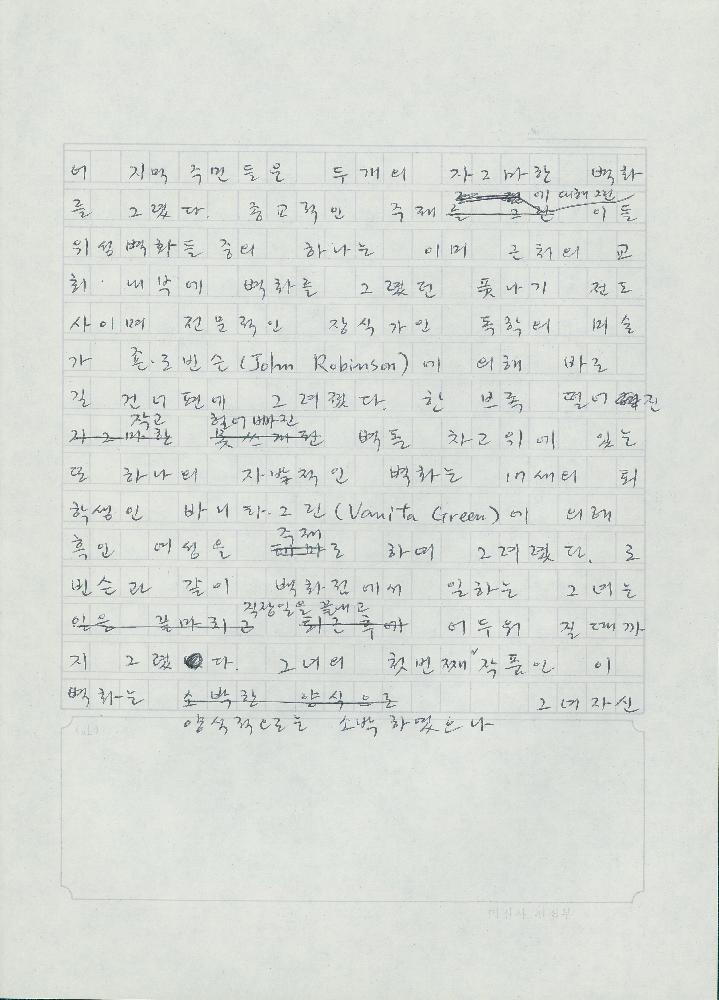 여 지역 주민들은 두개의 자그마한 벽화
에 대해 그린
를 그렸다. 종교적인 주제를 그린 이들
위성벽화들 중의 하나는 이미 근처의 교
회 내부에 벽화를 그렸던 풋나기 전도
사이며 전문적인 장식가인 독학의 미술
가 죤·로빈슨(John Robinson)에 의해 바로
길 건너편에 그려졌다. 한 브록 떨어진
작고 헐어빠진
자그마한 벽돌 차고위에 있는
또 하나의 자발적인 벽화는 17세의 퇴
학생인 바니타·그린(Vanita Green)에 의해
주제
흑인 여성을 로 하여 그려졌다. 로
빈슨과 같이 백화점에서 일하는 그녀는
직장일을 끝내고
일을 끝마치고 퇴근후에 어두워 질때까
지 그렸다. 그녀의 첫번째 작품인 이
벽화는 소박한 양식으로 그녀자신
양식적으로는 소박하였으나